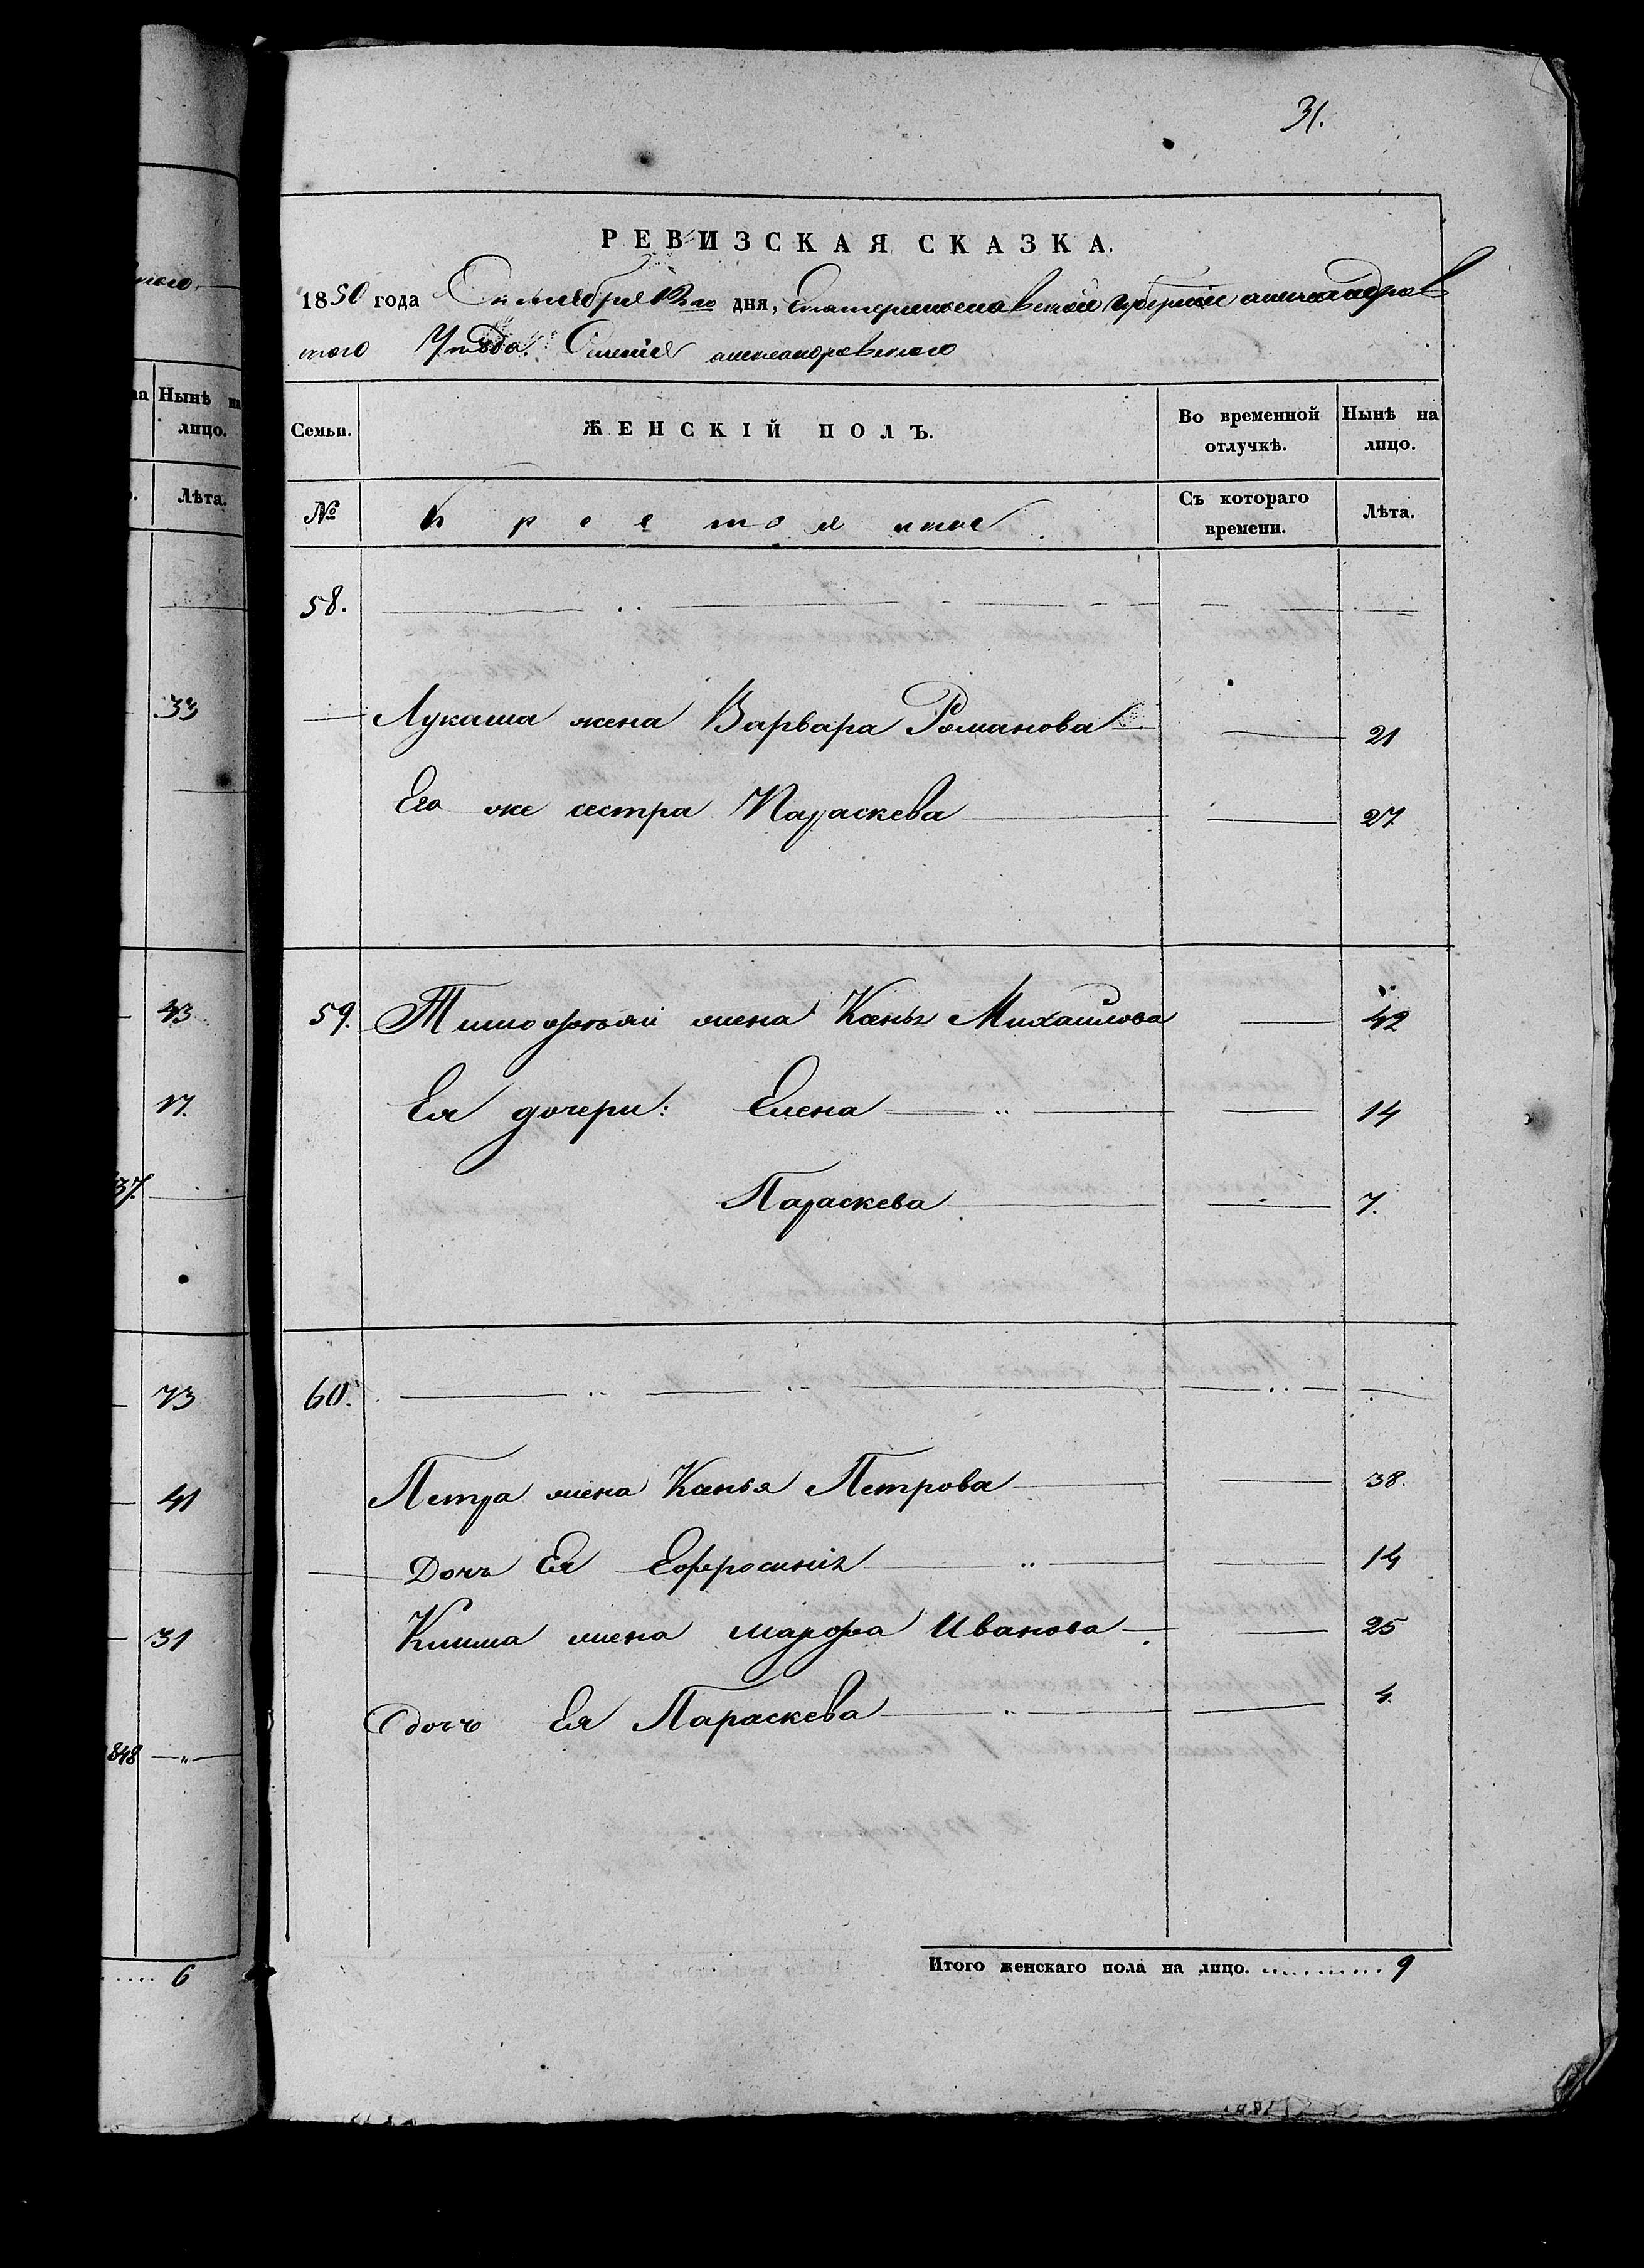 31.
РЕВИЗСКАЯ СКАЗКА.
1850 года Октября 12го дня, Екатеринославской губернии александров
ского Уѣзда. александровского
Семьи. ЖЕНСКІЙ ПОЛЪ. Во временной отлучкѣ. Нынѣ на лицо.
№ крестьянъ Съ котораго времени. Лѣта.
58.
Лукаша жена Варвара Романова 21
Его же сестра Параскева 27
59. Тимофѣя жена Ксенья Михайлова 42
Ея дочери: Елена 14
Параскева 7.
60.
Петра жена Ксенья Петрова 38.
Дочь Ея Ефросинія 14
Клима жена марфа Иванова 25
дочь Ея Параскева 4.
Итого женскаго пола на лицо. 9
ского
на Нынѣ на
лицо.
Лѣта.
33
43
17.
37.
73
41
31
848 "
6